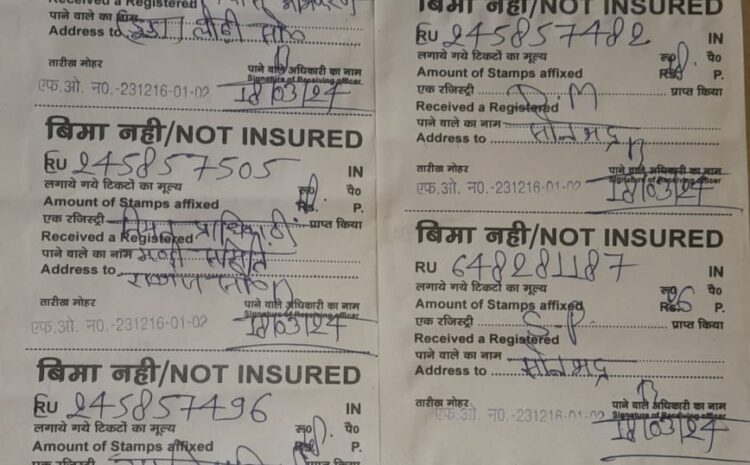 Received a Registered
पाने वाले का नाम
Address to
तारीख मोहर
पाने वाले अधिकारी का नाम
Signature of Receiving officer
एफ.ओ. न0.-231216-01-02
18/03/24
बिमा नही/NOT INSURED
RU 245857505 IN
लगाये गये टिकटों का मूल्य रू0 पै0
Amount of Stamps affixed Rs. P.
एक रजिस्ट्री प्राप्त किया
Received a Registered
पाने वाले का नाम मण्डी समिति
Address to
तारीख मोहर
पाने वाले अधिकारी का नाम
Signature of Receiving officer
एफ.ओ. न0.-231216-01-02
18/03/24
बिमा नही/NOT INSURED
RU 245857496 IN
लगाये गये टिकटों का मूल्य रू0 पै0
Amount of Stamps affixed Rs. P.
एक रजिस्ट्री प्राप्त किया
बिमा नही/NOT INSURED
RU 245857482 IN
लगाये गये टिकटों का मूल्य रू0 पै0
Amount of Stamps affixed Rs. P.
एक रजिस्ट्री D.M प्राप्त किया
Received a Registered
पाने वाले का नाम
Address to सोनभद्र
तारीख मोहर
पाने वाले अधिकारी का नाम
Signature of Receiving officer
एफ.ओ. न0.-231216-01-02
18/03/24
बिमा नही/NOT INSURED
RU 648281187 IN
लगाये गये टिकटों का मूल्य रू0 पै0
Amount of Stamps affixed Rs. P.
एक रजिस्ट्री S.P. प्राप्त किया
Received a Registered
पाने वाले का नाम
Address to सोनभद्र
तारीख मोहर
पाने वाले अधिकारी का नाम
Signature of Receiving officer
एफ.ओ. न0.-231216-01-02
18/03/24